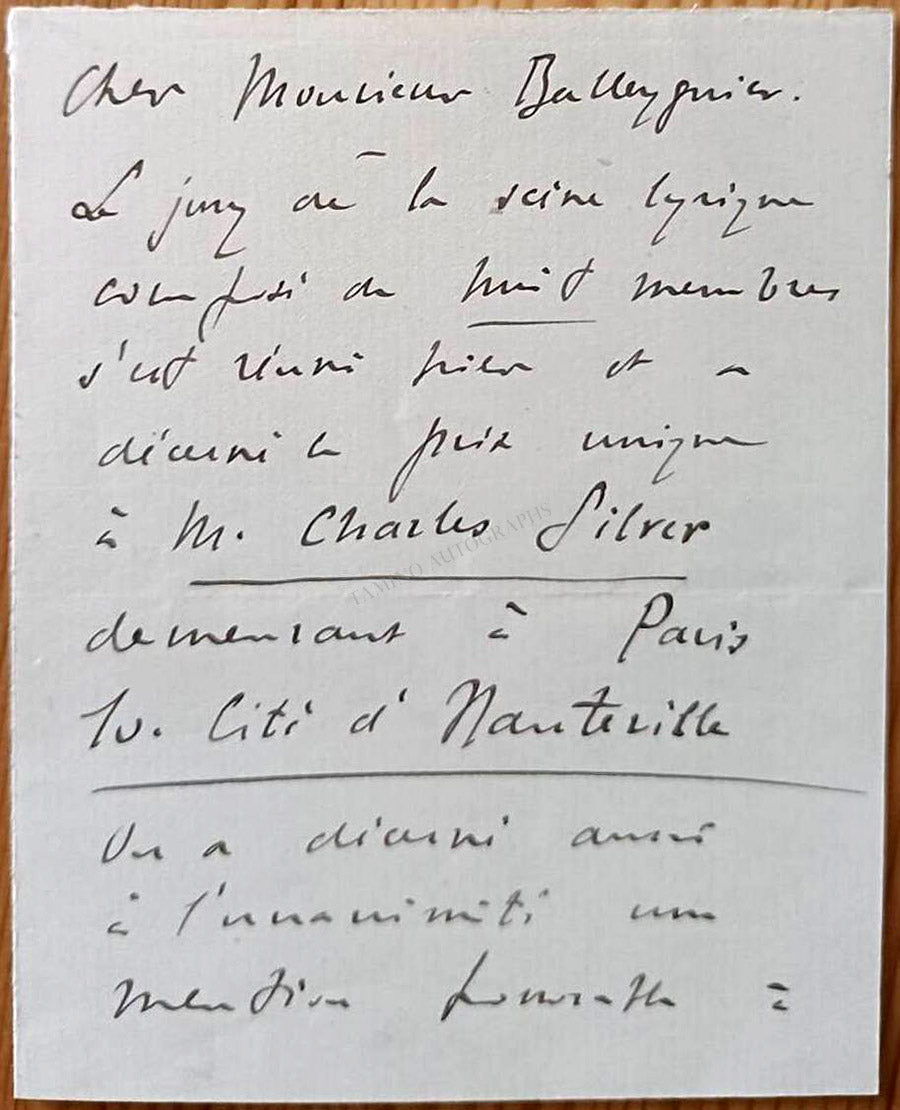 Cher Monsieur Balleyguier.
Le jury de la scène lyrique
composé de huit membres
s'est réuni hier et a
décerné le prix unique
à M. Charles Silver
TAMINO AUTOGRAPHS
demeurant à Paris
10. Cité d'Hauteville
On a décerné aussi
à l'unanimité une
mention honorable à